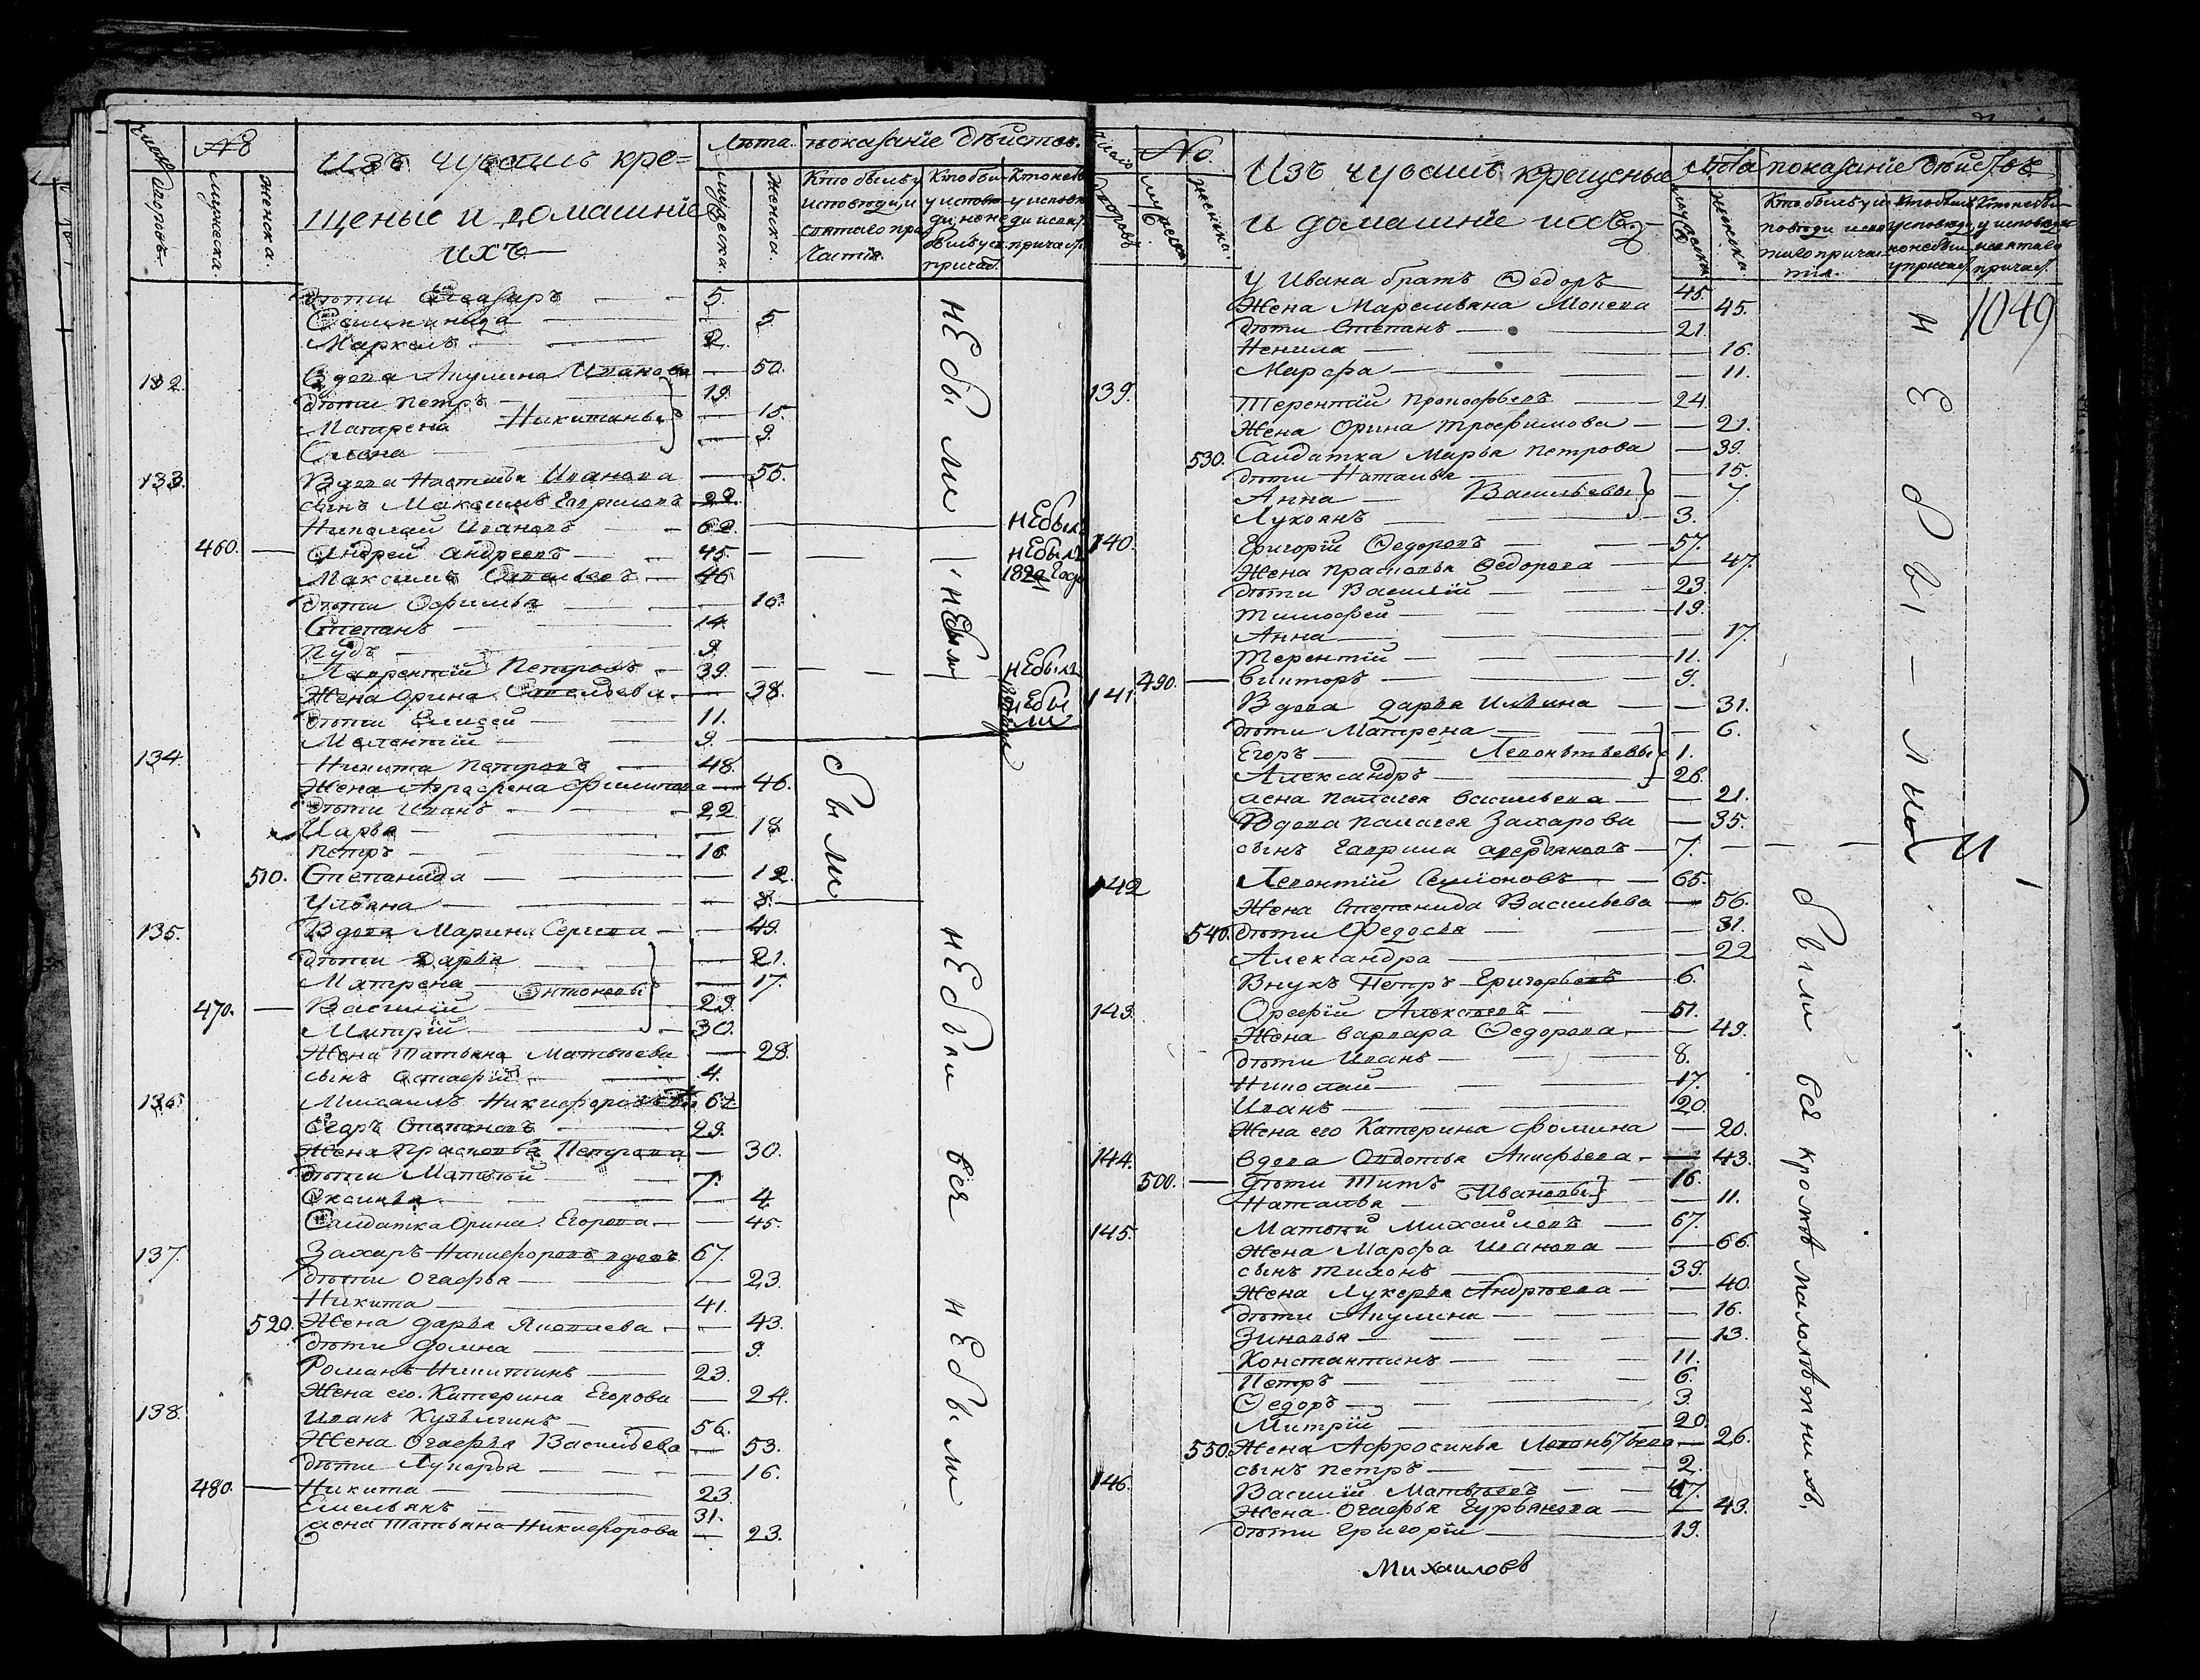 число дворовъ
№
мужеска.
женска.
Изъ чувашъ кре=
щеные и домашнiе
ихъ
Лѣта.
мужеска.
женска.
показанiе дѣйствъ.
Кто былъ у исповѣди, и святаго при частiя.
дѣти Елеазаръ 5.
5.
Маркелъ 2.
132. Вдова Акулина Иванова 50.
дѣти Петръ 19.
Матрена Никитины 15.
9.
133. Вдова Настасья Иванова 55.
сынъ Максимъ Гавриловъ 22.
Николай Ивановъ 62. небылъ
460. Андрей Андреевъ 45. небылъ
Максимъ Савельевъ 46
дѣти Офимья 16.
Степанъ 14.
Пудъ 9.
Лаврентiй Петровъ 39. небылъ
Жена Орина Савельева 38. небы ли
дѣти Елисей 11.
Мелентiй 9.
134. Никита Петровъ 48.
Жена Аграфена Филипова 46.
дѣти Иванъ 22
Марья 18
Петръ 16.
510. Степанида 12.
Ульяна 8.
135. Вдова Марина Сергева 49.
дѣти Дарья 21.
Матрена Онтоновы 17.
470. Василiй 29.
Митрiй 30.
Жена Татьяна Матвѣева 28.
сынъ Остафiй 4.
136. Михаилъ Никифоровъ 62
Егоръ Степановъ 29.
Жена Прасковья Петрова 30.
дѣти Матвѣй 7.
Оксинья 4.
Салдатка Орина Егорова 45.
137. Захаръ Никифоровъ вдовъ 67.
дѣти Огафья 23.
Никита 41.
520. Жена Дарья Яковлева 43.
дѣти Домна 9.
Романъ Никитинъ 23.
Жена его Катерина Егорова 24.
138. Иванъ Кузьминъ 56.
Жена Огафья Васильева 53.
дѣти Лукерья 16.
480. Никита 23.
Емельянъ 31.
жена Татьяна Никифорова 23.
нЕбы ли
нЕбыли
были
нЕбыли всѣ нЕбыли
№.
Изъ чувашъ крещеные
и домашнiе ихъ
Лѣта
показанiе дѣйствъ
1049
У Ивана братъ Федоръ 45.
Жена Маремьяна Мокева 45.
дѣти Степанъ 21.
Ненила 16.
Марфа 11.
139. Терентiй Прокофьевъ 24.
Жена Орина Трофимова 21.
530. Салдатка Марья Петрова 39.
дѣти Наталья 15.
Анна Васильевы 7
Лукоянъ 3.
140. Григорiй Федоровъ 57.
Жена Прасковья Федорова 47.
дѣти Василiй 23.
Тимофей 19.
Анна 17
Терентiй 11.
490. Викторъ 9.
141. Вдова Дарья Ильина 31.
дѣти Матрена 6.
Егоръ Леонтьевы 1.
Александръ 26.
жена Палагея Васильева 21.
Вдова Палагея Захарова 35.
сынъ Гаврила 7.
142 Леонтiй Семiоновъ 65.
Жена Степанида Васильева 56.
540. дѣти Федосья 31.
Александра 22
Внукъ Петръ Григорьевъ 6.
143. Орефiй Алексѣевъ 51.
Жена Варвара Федорова 49.
дѣти Иванъ 8.
Николай 17.
Иванъ 20.
Жена его Катерина Фомина 20.
144. Вдова Овдотья Анисьева 43.
500. дѣти Титъ 16.
Наталья Ивановы 11.
145. Матвѣй Михайловъ 67.
Жена Марфа Иванова 66.
сынъ Тихонъ 39.
Жена Лукерья Андрѣева 40.
дѣти Акулина 16.
Зиновья 13.
Константинъ 11.
Петръ 6.
Федоръ 3.
Митрiй 20
550. Жена Афросинья Леонтьева 26.
сынъ Петръ 2.
146. Василiй Матвѣевъ 47.
Жена Огафья Гурьянова 43.
дѣти Григорiй 19.
нЕбы ли
были всѣ кромѣ малолѣтнихъ.
Михаиловъ